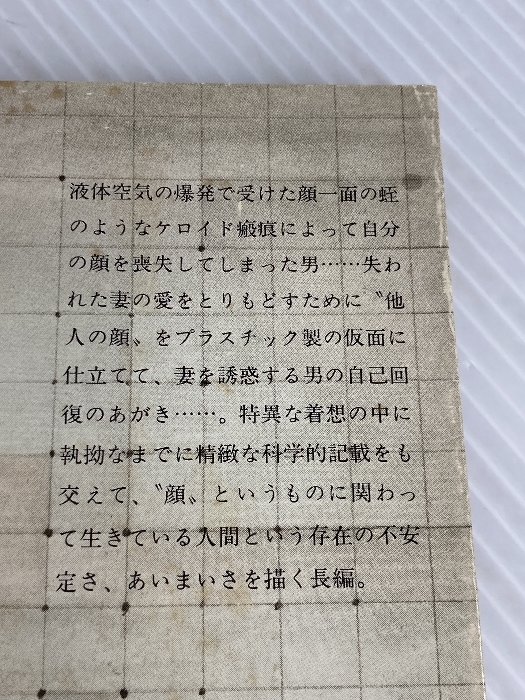 液体空気の爆発で受けた顔一面の蛭
のようなケロイド瘢痕によって自分
の顔を喪失してしまった男……失わ
れた妻の愛をとりもどすために〝他
人の顔〟をプラスチック製の仮面に
仕立てて、妻を誘惑する男の自己回
復のあがき……。特異な着想の中に
執拗なまでに精緻な科学的記載をも
交えて、〝顔〟というものに関わっ
て生きている人間という存在の不安
定さ、あいまいさを描く長編。